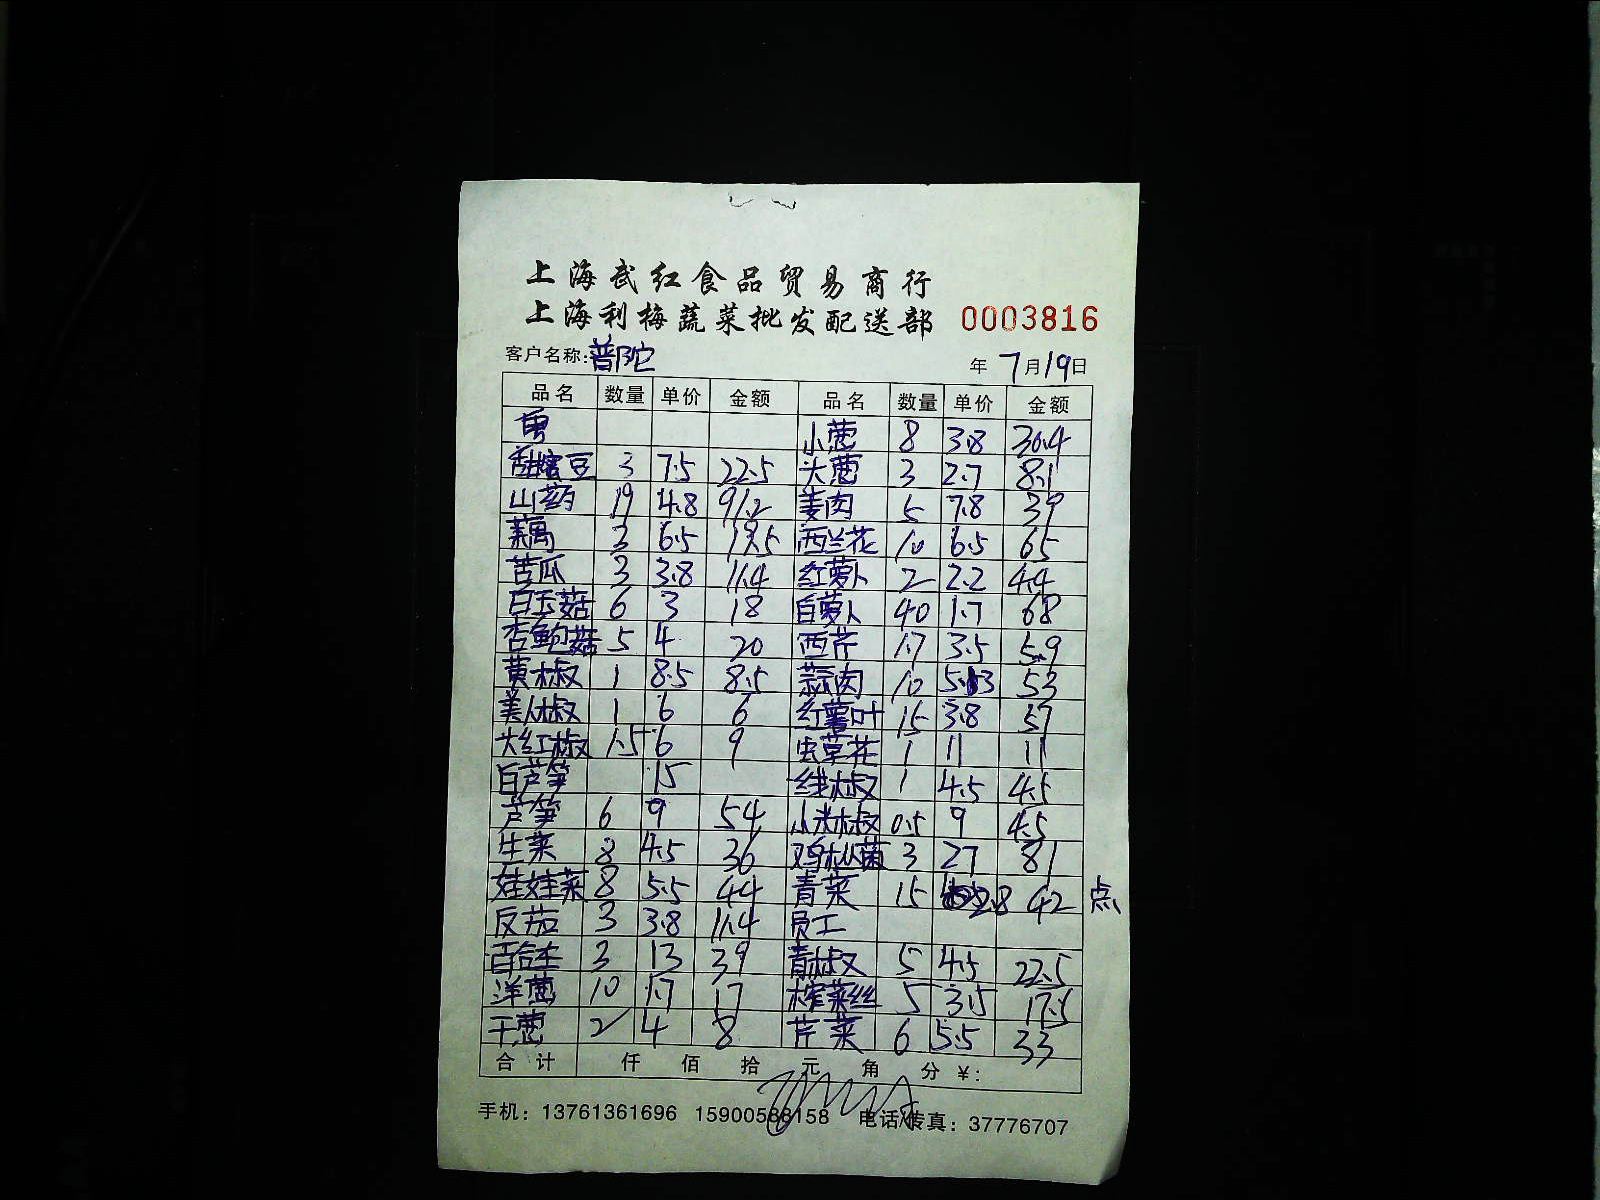 上海武红食品贸易商行
上海利梅蔬菜批发配送部 0003816
客户名称:普陀 年 7月19日
品名 数量 单价 金额 品名 数量 单价 金额
小葱 8 3.8 30.4
豆 3 7.5 22.5 大葱 3 2.7 8.1
山药 19 4.8 91.2 姜肉 5 7.8 39
莱藕 3 6.5 19.5 西兰花 10 6.5 65
苦瓜 3 3.8 11.4 红萝卜 2 2.2 4.4
白玉菇 6 3 18 白萝卜 40 1.7 68
杏鲍菇 5 4 20 西芹 1.7 3.5 5.9
黄椒 1 8.5 8.5 蒜肉 10 53
美人椒 1 6 6 红薯叶 15 3.8 57
大红椒 1.5 6 9 虫草花 1 11 11
白芦笋 15 线椒 1 4.5 4.5
芦笋 6 9 54 小米椒 0.5 9 4.5
生菜 8 4.5 36 鸡枞菌 3 27 81
娃娃菜 8 5.5 44 青菜 15 2.8 42 点
反茄 3 3.8 11.4 员工
百合 3 13 39 青椒 5 4.5 22.5
洋葱 10 1.7 17 榨菜丝 5 3.5 17.5
干葱 2 4 8 芹菜 6 5.5 33
合计 仟 佰 拾 元 角 分 ¥:
手机: 13761361696 15900588158 电话/传真: 37776707